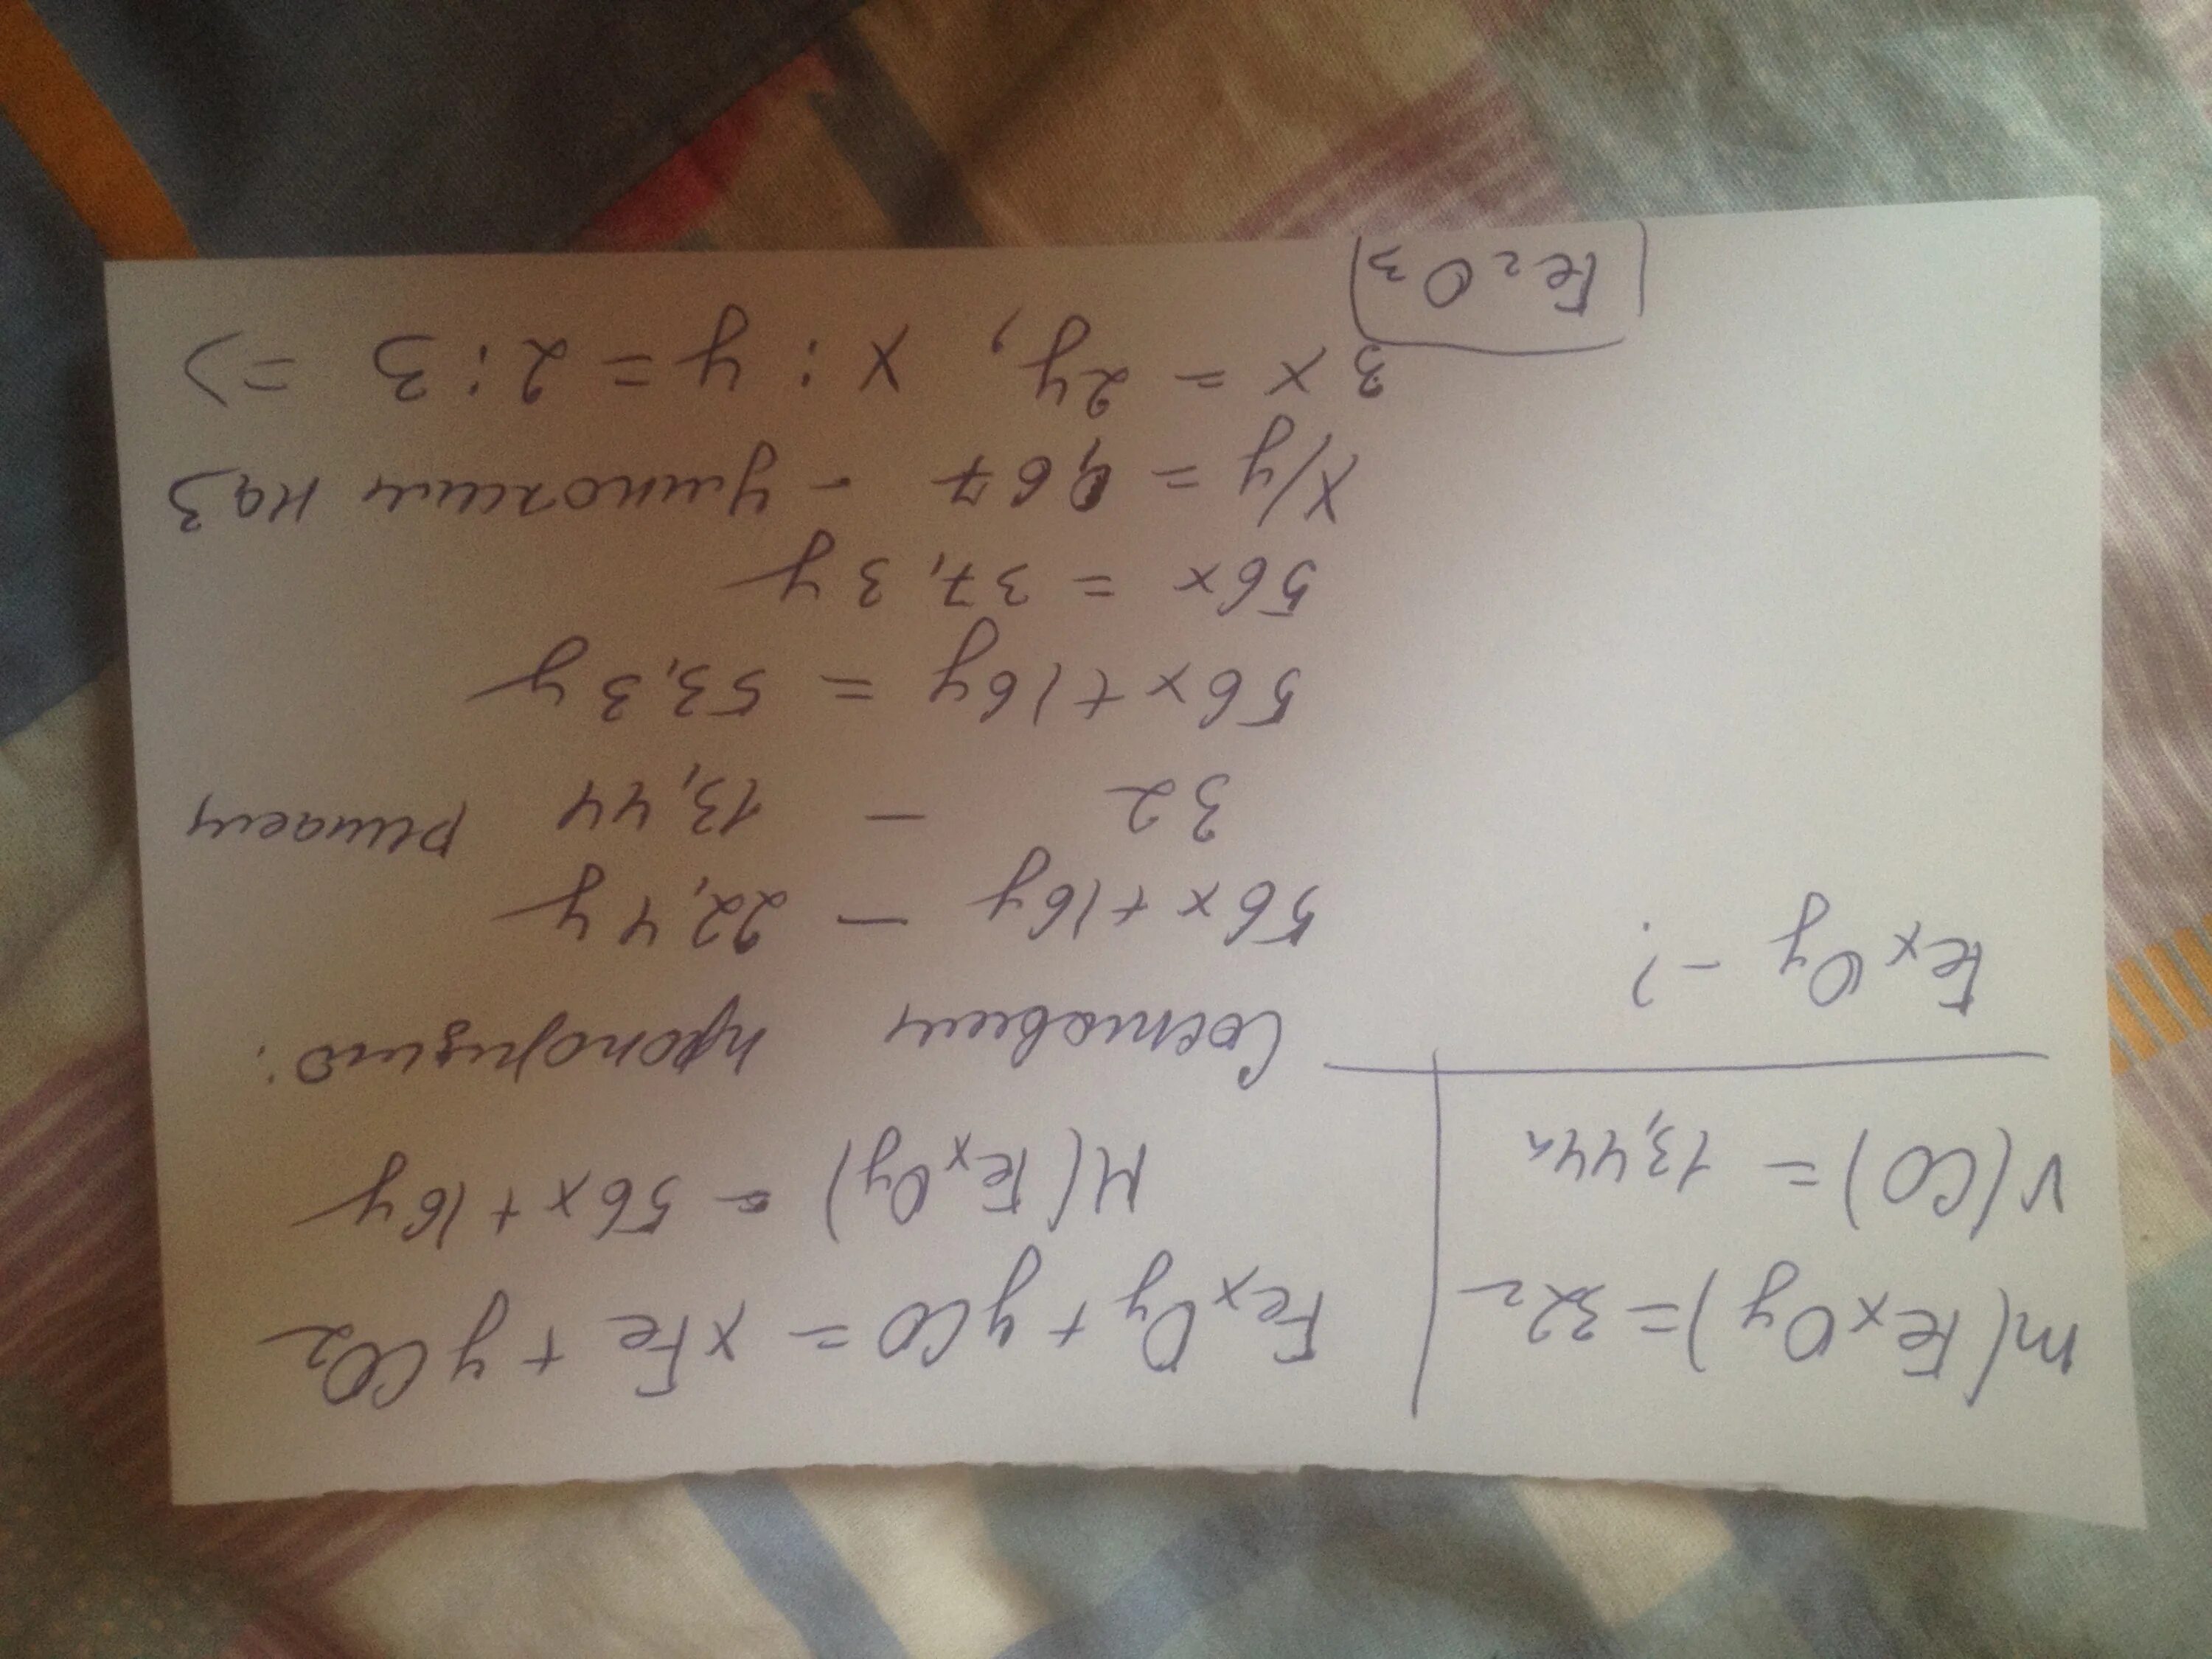 m(FexOy) = 32г
V(CO) = 13,44л
FexOy - ?
FexOy + yCO = xFe + yCO2
M(FexOy) = 56x + 16y
Составим пропорцию:
56x + 16y — 22,4y
32 — 13,44 решаем
56x + 16y = 53,3y
56x = 37,3y
x/y = 0,67 - умножим на 3
3x = 2y, x : y = 2 : 3 =>
Fe2O3